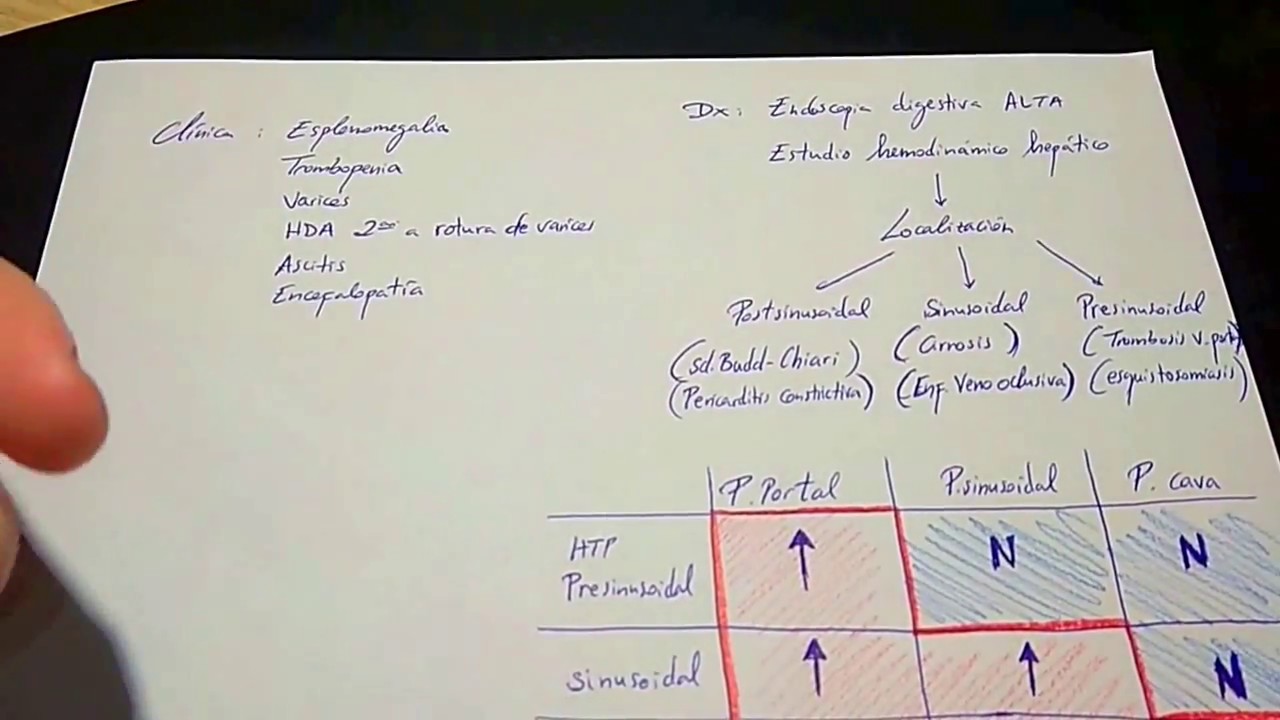 Clínica : Esplenomegalia
Trombopenia
Varices
HDA 2ria a rotura de varices
Ascitis
Encefalopatía
Dx: Endoscopia digestiva ALTA
Estudio hemodinámico hepático
Localización
Postsinusoidal Sinusoidal Presinusoidal
(Sd. Budd-Chiari) (Cirrosis) (Trombosis V. port)
(Pericarditis constrictiva) (Enf. Veno oclusiva) (esquistosomiasis)
P. Portal P. sinusoidal P. cava
HTP ↑ N N
Presinusoidal
sinusoidal ↑ ↑ N